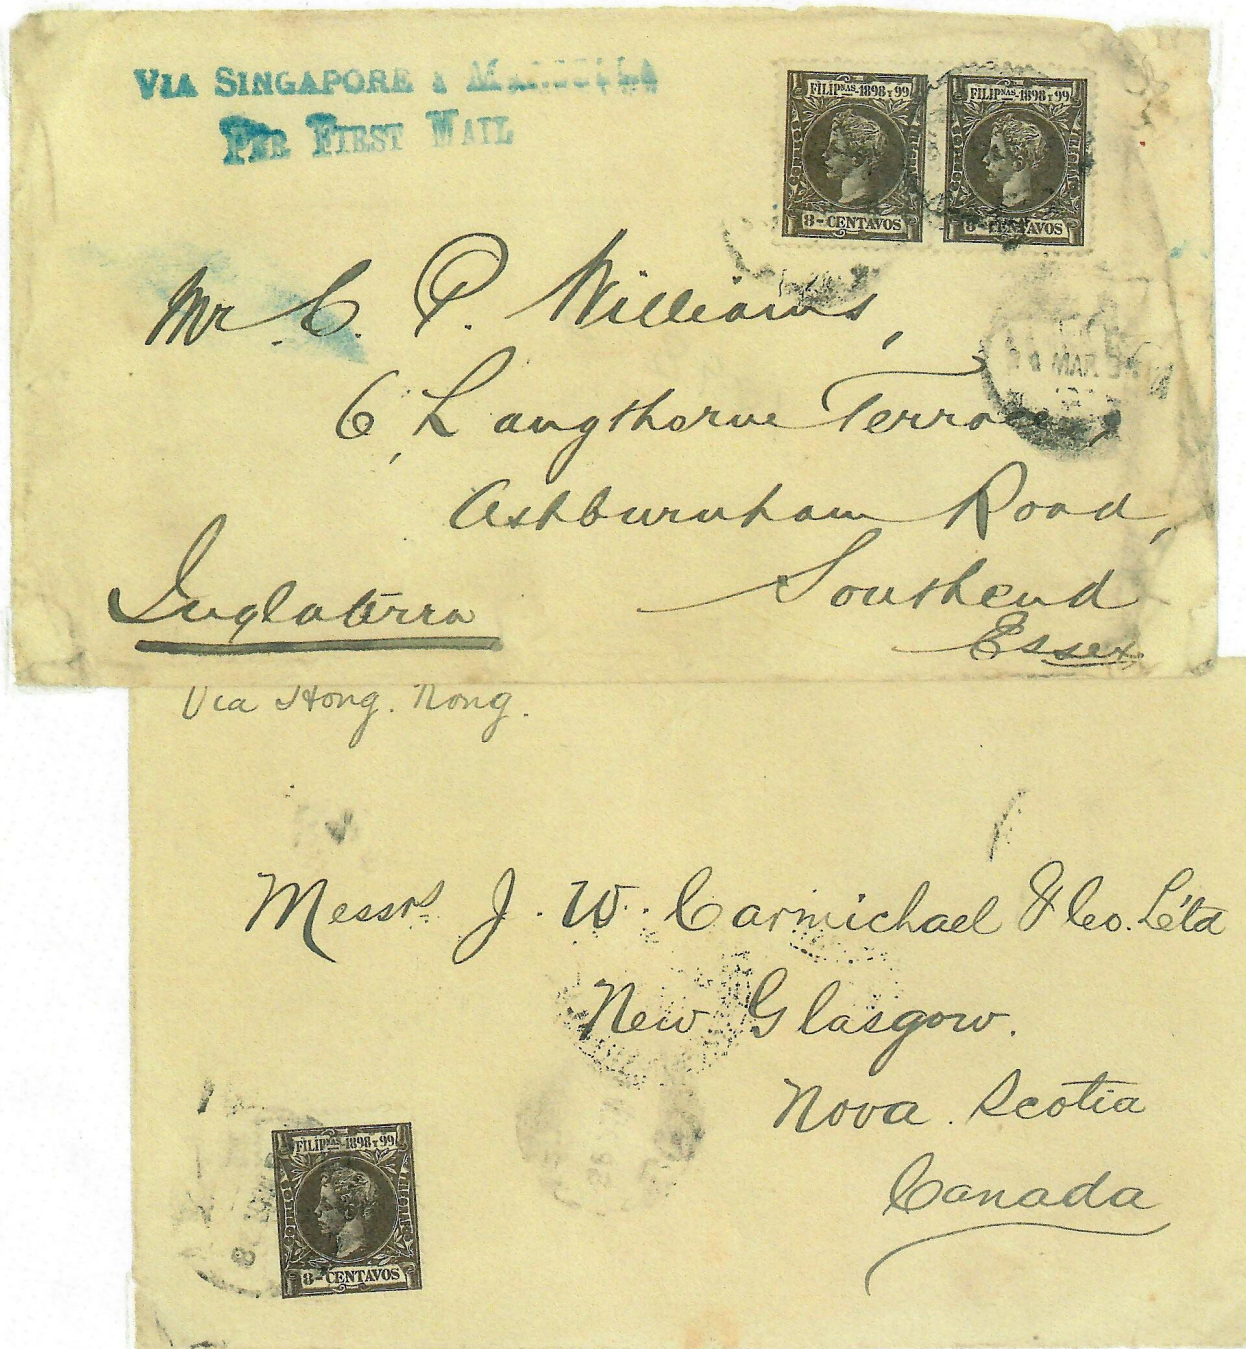 VIA SINGAPORE Y
PER FIRST MAIL
FILIPNAS-1898 Y 99
8-CENTAVOS
FILIPNAS-1898 Y 99
8-CENTAVOS
Mr. C. P. Williams,
MAR
6, Langthorne Terrace,
Ashburnham Road,
Southend
Essex
Inglaterra
Via Hong. Kong.
Messrs J. W. Carmichael & Co. Ltd
New Glasgow.
Nova Scotia
Canada
FILIPNAS-1898 Y 99
8-CENTAVOS